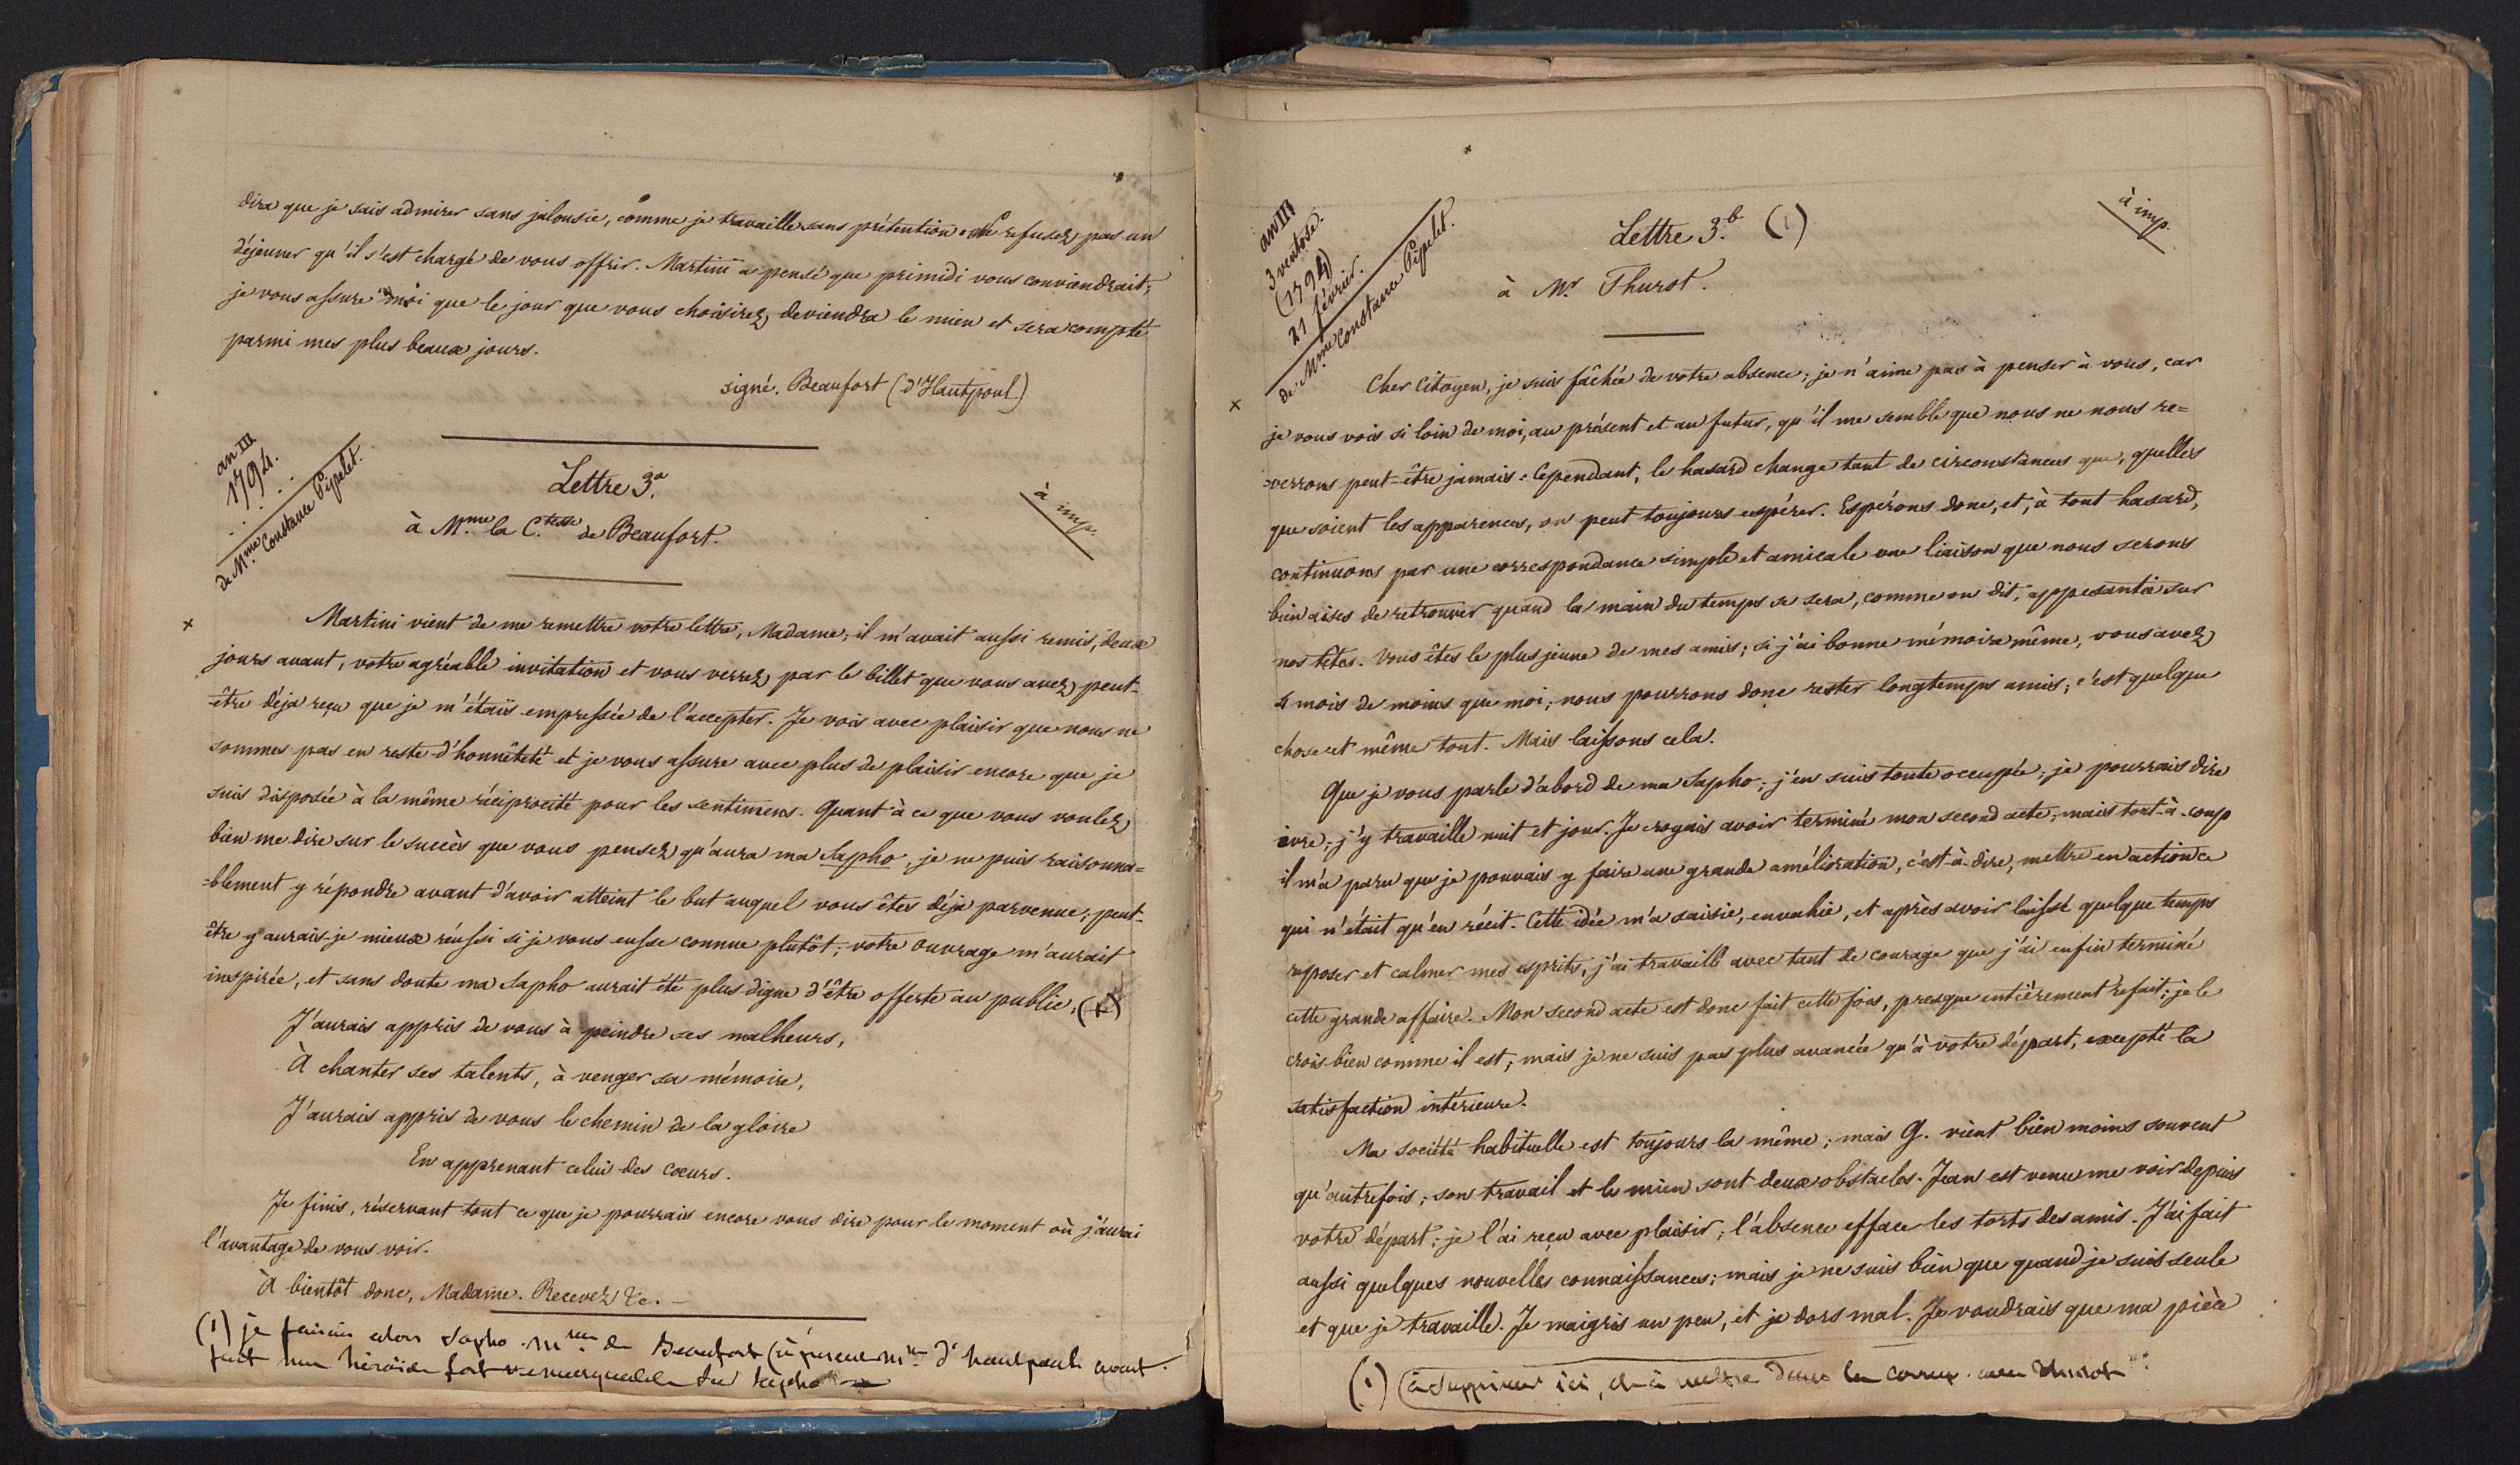 dira que je sais admirer sans jalousie, comme je travaille sans prétention. Ne refusez pas un
déjeuner qu'il s'est chargé de vous offrir. Martini a pensé que primidi vous conviendrait;
je vous assure moi que le jour que vous choisirez deviendra le mien et sera compté
parmi mes plus beaux jours.
signé, Beaufort (d'Hautpoul.)
an III
1794.
de Mme Constance Pipelet.
Lettre 3.a
à imp.
à M.me la C.tesse de Beaufort.
Martini vient de me remettre votre lettre, Madame; il m'avait aussi remis, deux
jours avant, votre agréable invitation et vous verrez par le billet que vous avez peut-
être déja reçu que je m'étais empressée de l'accepter. Je vois avec plaisir que nous ne
sommes pas en reste d'honnêteté et je vous assure avec plus de plaisir encore que je
suis disposée à la même réciprocité pour les sentimens. Quant à ce que vous voulez
bien me dire sur le succès que vous pensez qu'aura ma Sapho, je ne puis raisonna=
=blement y répondre avant d'avoir atteint le but auquel vous êtes déja parvenue; peut-
être y aurais-je mieux réussi si je vous eusse connue plutôt; votre ouvrage m'aurait
inspirée, et sans doute ma Sapho aurait été plus digne d'être offerte au public,
J'aurais appris de vous à peindre ses malheurs,
À chanter ses talents, à venger sa mémoire,
J'aurais appris de vous le chemin de la gloire
En apprenant celui des coeurs.
Je finis, réservant tout ce que je pourrais encore vous dire pour le moment où j'aurai
l'avantage de vous voir.
À bientôt donc, Madame. Recevez &c. -
(1) je faisais alors Sapho. Mme de Beaufort (à présent Mme d'hautpoul) avait
fait une héroïde fort remarquable sur Sapho
an III
3 ventose.
(1794)
21 février.
de Mme Constance Pipelet.
Lettre 3.b (1)
à imp.
à Mr Thurot.
Cher Citoyen, je suis fâchée de votre absence; je n'aime pas à penser à vous, car
je vous vois si loin de moi, au présent et au futur, qu'il me semble que nous ne nous re=
=verrons peut-être jamais. Cependant, le hasard change tant de circonstances que, quelles
que soient les apparences, on peut toujours espérer. Espérons donc, et, à tout hasard,
continuons par une correspondance simple et amicale une liaison que nous serons
bien aises de retrouver quand la main du temps se sera, comme on dit, appesantie sur
nos têtes. Vous êtes le plus jeune de mes amis; si j'ai bonne mémoire même, vous avez
4 mois de moins que moi; nous pourrons donc rester longtemps amis; c'est quelque
chose et même tout. Mais laissons cela.
Que je vous parle d'abord de ma Sapho; j'en suis toute occupée; je pourrais dire
ivre; j'y travaille nuit et jour. Je croyais avoir terminé mon second acte, mais tout-à-coup
il m'a paru que je pouvais y faire une grande amélioration, c'est-à-dire, mettre en action ce
qui n'était qu'en récit. Cette idée m'a saisie, envahie, et après avoir laissé quelque temps
reposer et calmer mes esprits, j'ai travaillé avec tant de courage que j'ai enfin terminé
cette grande affaire. Mon second acte est donc fait cette fois, presque entièrement refait; je le
crois bien comme il est; mais je ne suis pas plus avancée qu'à votre départ, excepté la
satisfaction intérieure.
Ma société habituelle est toujours la même; mais G. vient bien moins souvent
qu'autrefois; son travail et le mien sont deux obstacles. Jean est venu me voir depuis
votre départ; je l'ai reçu avec plaisir; l'absence efface les torts des amis. J'ai fait
aussi quelques nouvelles connaissances; mais je ne suis bien que quand je suis seule
et que je travaille. Je maigris un peu, et je dors mal. Je voudrais que ma pièce
(1) à supprimer ici, et à mettre dans la corresp. avec Thurot